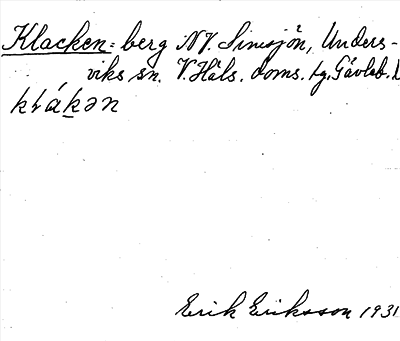 Klacken = berg NV. Simsjön, Unders-
viks sn. V. Häls. doms. tg. Gävleb. l
kłákən
Erik Eriksson 1931